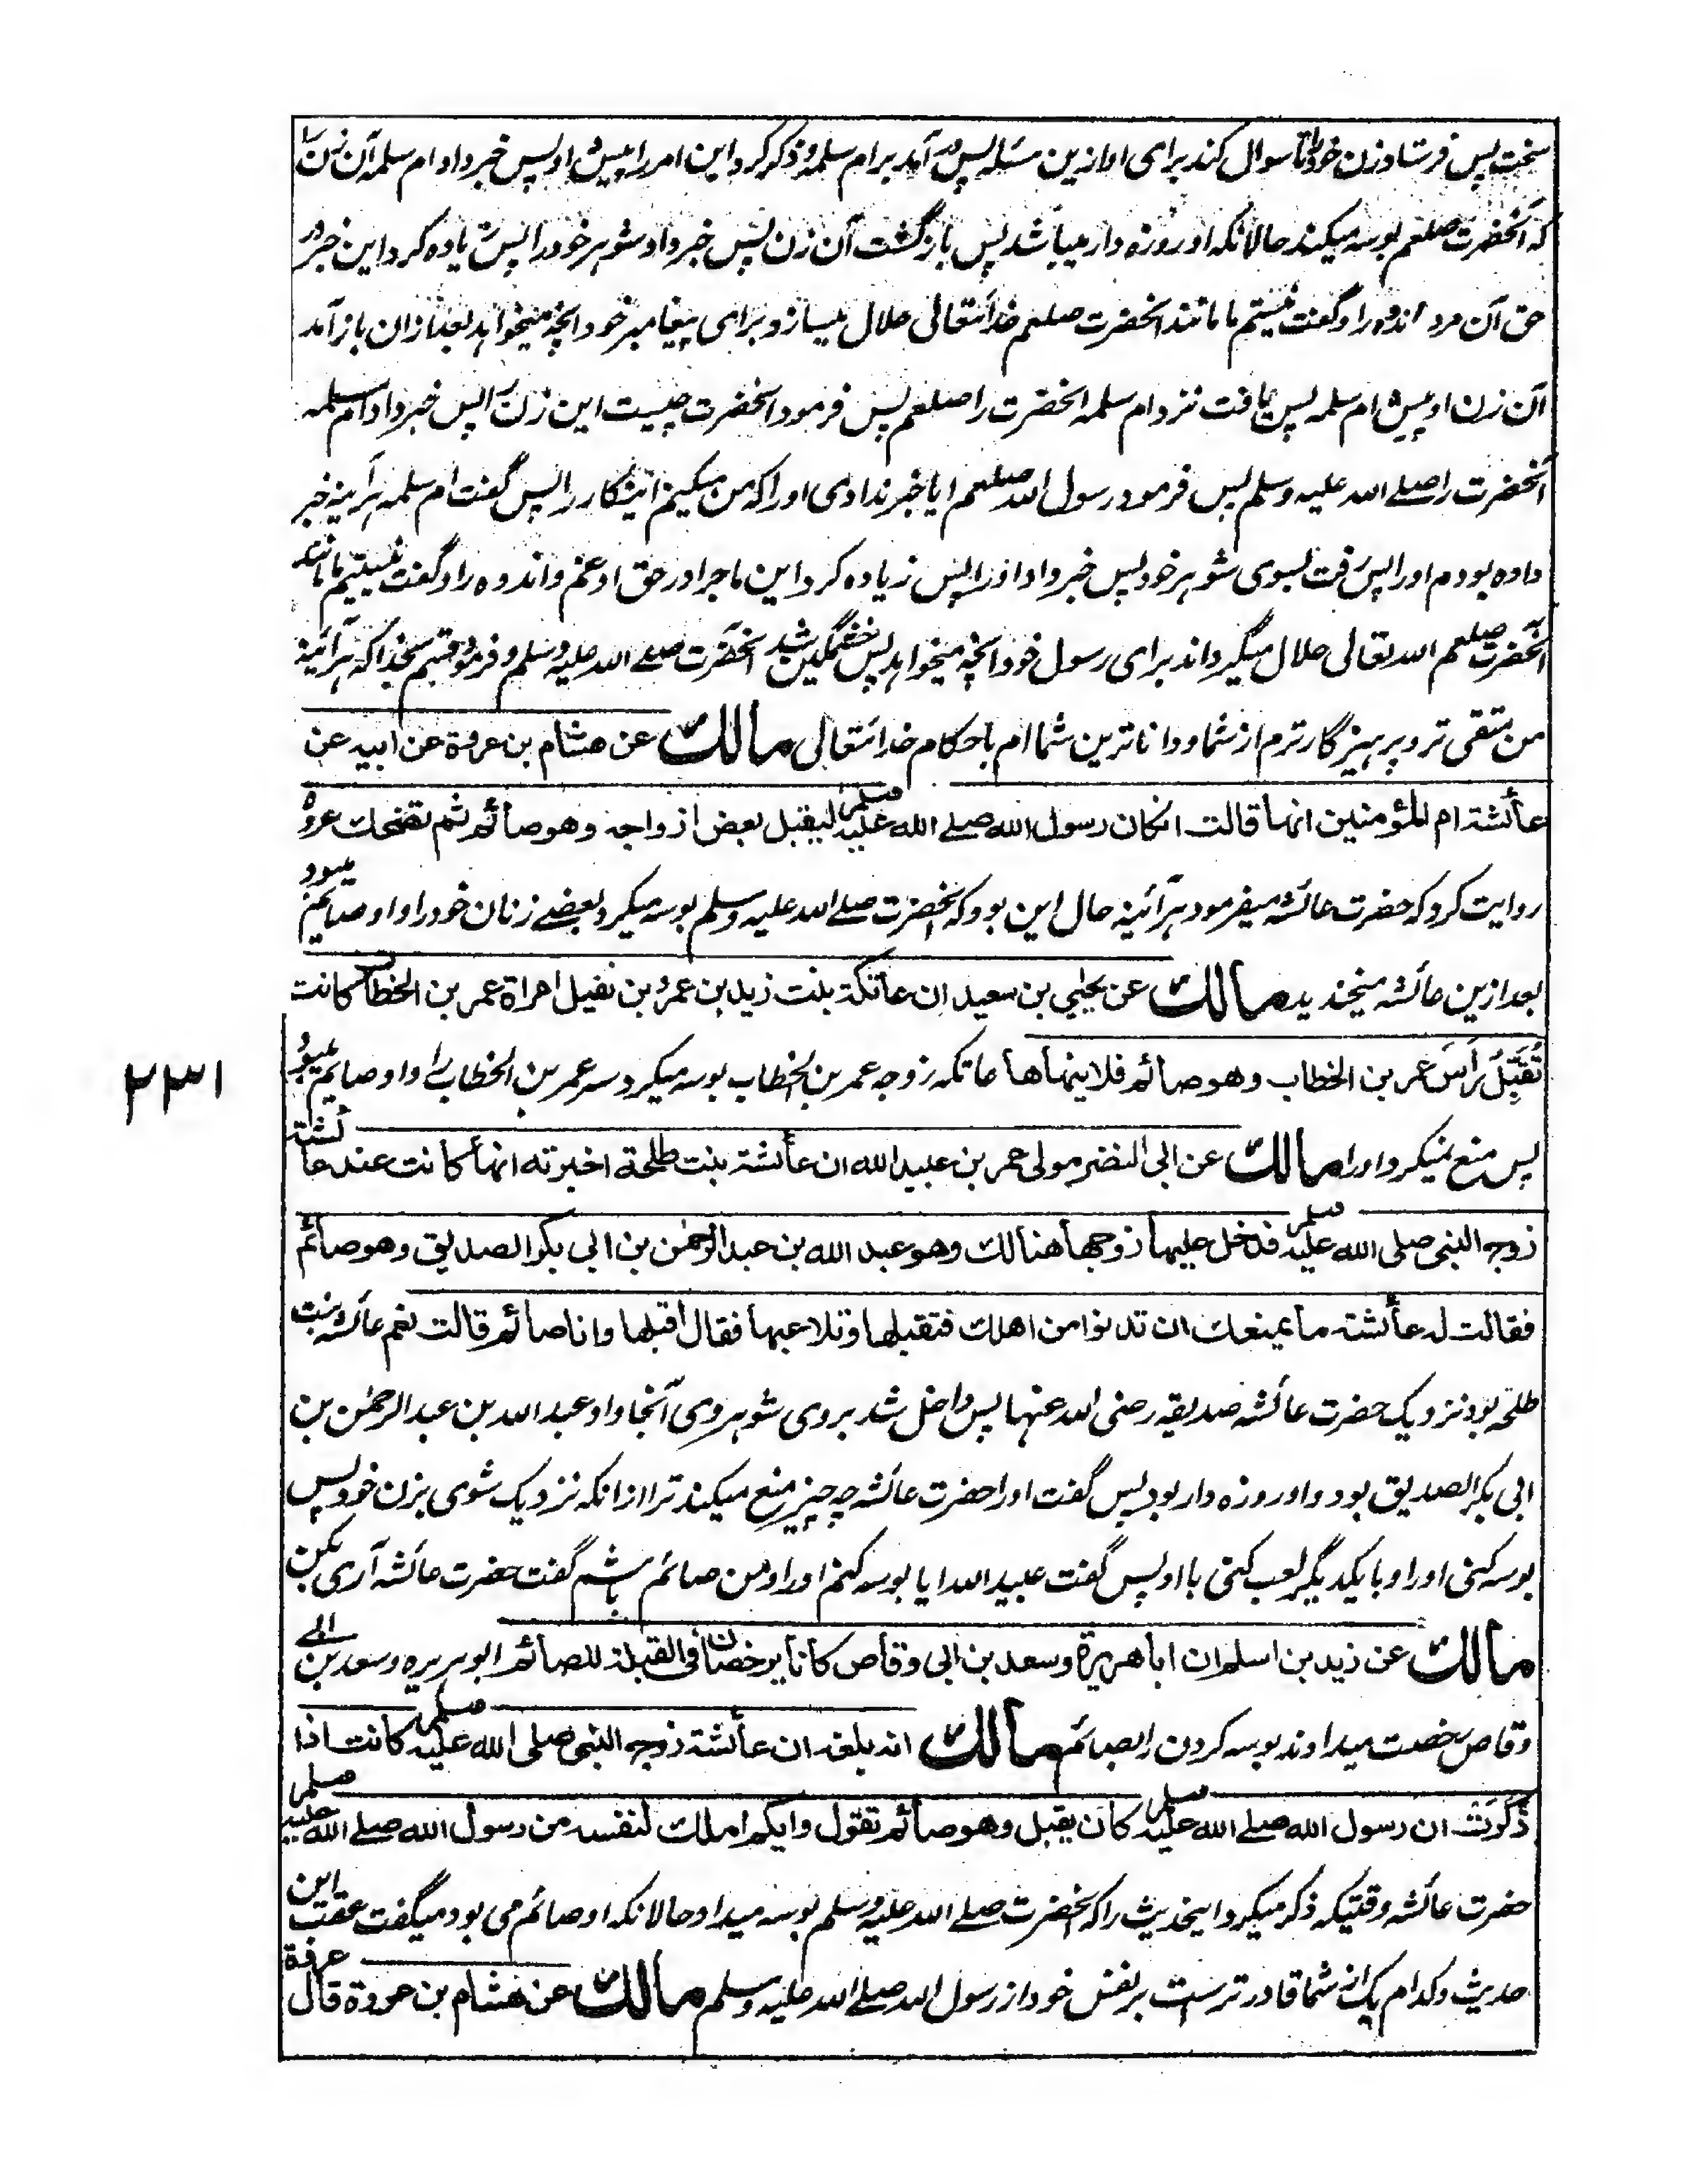 سخت پس فرستاد زن خود را تا سوال کند برای او ازین مسئله پس در آمد بر ام سلمه و ذکر کرد این امر را پیش او پس خبر داد ام سلمه آن زن را
که آنحضرت صلعم بوسه میکند حالانکه او روزه دار میباشد پس بازگشت آن زن پس خبر داد شوهر خود را پس زیاده کرد این خبر در
حق آن مرد اندوه را و گفت نیستم ما مانند آنحضرت صلعم خدا تعالی حلال میسازد برای پیغامبر خود آنچه میخواهد بعد ازان باز آمد
آن زن او پیش ام سلمه پس یافت نزد ام سلمه آنحضرت را صلعم پس فرمود آنحضرت چیست این زن را پس خبر داد ام سلمه
آنحضرت را صلے الله علیه وسلم پس فرمود رسول الله صلعم ایا خبر ندادی او را که من میکنم اینکار را پس گفت ام سلمه هرآینه خبر
داده بودم او را پس رفت بسوی شوهر خود پس خبر داد او را پس زیاده کرد این ماجرا در حق او غم و اندوه را و گفت نیستیم ما مانند
آنحضرت صلعم الله تعالی حلال میگرداند برای رسول خود آنچه میخواهد پس خشمگین شد آنحضرت صلے الله علیه وسلم و فرمود قسم بخدا که هرآئینه
من متقی تر و پرهیزگار ترم از شما و داناترین شما ام باحکام خدا تعالی مالك عن هشام بن عروة عن ابیه عن
عائشة ام المؤمنین انها قالت ان کان رسول الله صلے الله علیه وسلم لیقبل بعض ازواجه وهو صائم ثم تضحك عروه
روایت کرد که حضرت عائشه میفرمود هرآئینه حال این بود که آنحضرت صلے الله علیه وسلم بوسه میکرد بعضے زنان خود را و او صائم میبود
بعد ازین عائشه میخندید مالك عن یحیی بن سعید ان عاتکة بنت زید بن عمرو بن نفیل امراة عمر بن الخطاب کانت
تُقَبِّلُ رَأسَ عمر بن الخطاب وهو صائم فلا ینهاها عاتکه زوجه عمر بن الخطاب بوسه میکرد سر عمر بن الخطاب را و او صائم میبود
پس منع نمیکرد او را مالك عن ابی النضر مولی عمر بن عبید الله ان عائشة بنت طلحة اخبرته انها کانت عند عائشة
زوجه النبی صلی الله علیه وسلم فدخل علیها زوجها هنالك وهو عبد الله بن عبد الرحمن بن ابی بکر الصدیق وهو صائم
فقالت له عائشة ما یمنعك ان تدنوا من اهلك فتقبلها وتلاعبها فقال اقبلها وانا صائم قالت نعم عائشه بنت
طلحه بود نزدیک حضرت عائشه صدیقه رضی الله عنها پس داخل شد بر وی شوهر وی آنجا و او عبد الله بن عبد الرحمن بن
ابی بکر الصدیق بود و او روزه دار بود پس گفت او را حضرت عائشه چه چیز منع میکند ترا ازانکه نزدیک شوی بزن خود پس
بوسه کنی او را و بایکدیگر لعب کنی با او پس گفت عبید الله ایا بوسه کنم او را و من صائم باشم گفت حضرت عائشه آری بکن
مالك عن زید بن اسلم ان ابا هریرة وسعد بن ابی وقاص کانا یرخصان فی القبلة للصائم ابوهریره و سعد بن ابی
وقاص رخصت میدادند بوسه کردن را بصائم مالك انه بلغه ان عائشة زوجه النبی صلی الله علیه وسلم کانت اذا
ذَکَرَت ان رسول الله صلے الله علیه وسلم کان یقبل وهو صائم تقول وایکم املك لنفسه من رسول الله صلے الله علیه وسلم
حضرت عائشه وقتیکه ذکر میکرد اینحدیث را که آنحضرت صلے الله علیه وسلم بوسه میداد حالانکه او صائم می بود میگفت عقب این
حدیث و کدام یک از شما قادر ترست بر نفس خود از رسول الله صلے الله علیه وسلم مالك عن هشام بن عروة قال عروة
۲۳۱